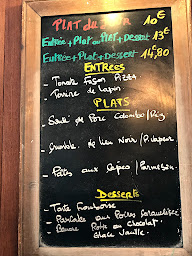 Plat du Jour 10€
Entrée + Plat ou Plat + Dessert 13€
Entrée + Plat + Dessert 14,80
ENTRÉES
- Tomate Façon Pizza
- Terrine de Lapin
PLATS
- Sauté de Porc Colombo / Riz
- de Lieu Noir /
- Pâtes aux Cèpes / Parmesan
Desserts
- Tarte Framboise
- Pancakes aux Poires Caramélisées
- Poire au chocolat
Glace Vanille